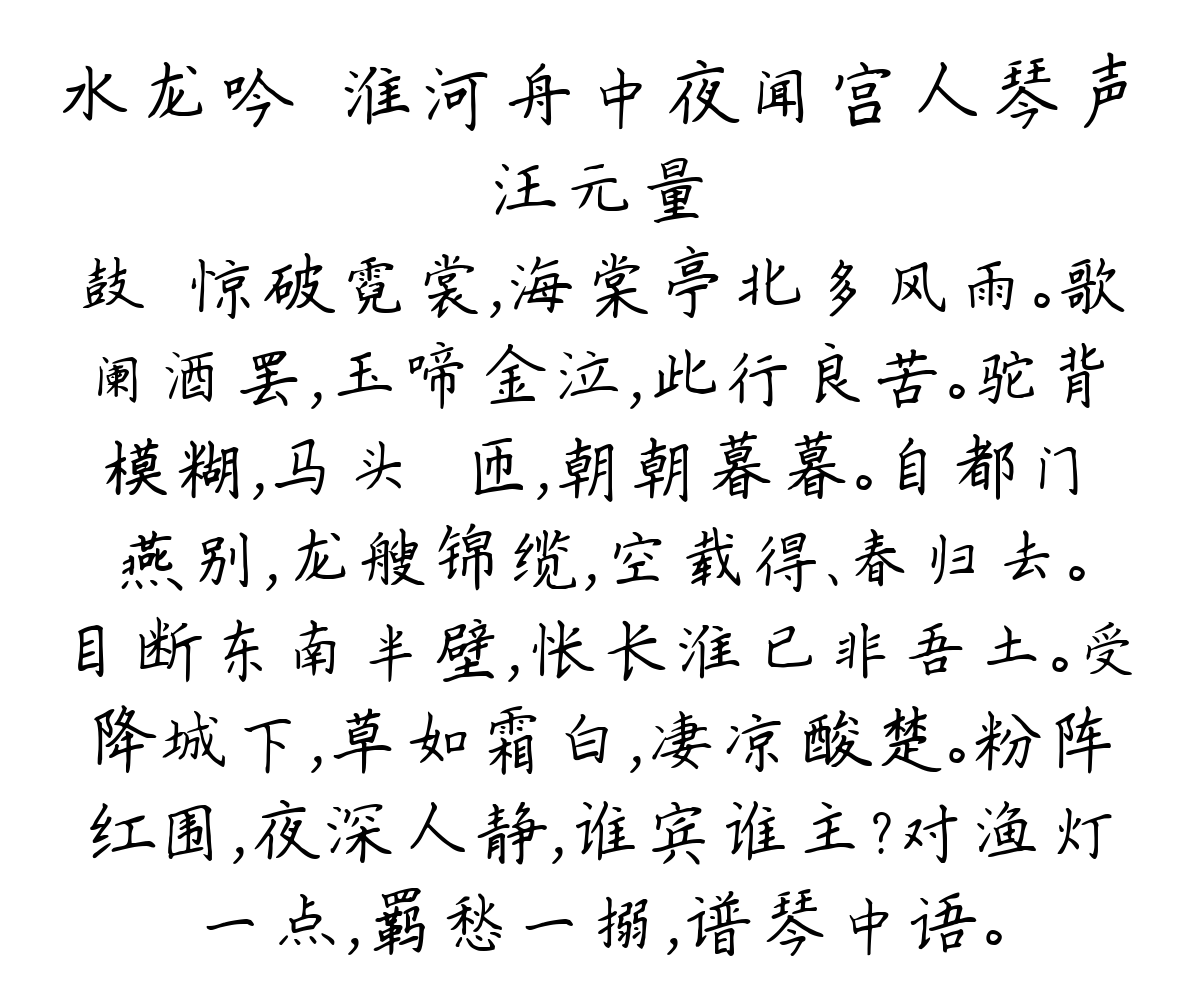 水龙吟 淮河舟中夜闻宫人琴声
汪元量
鼓 惊破霓裳,海棠亭北多风雨。歌
阑酒罢,玉啼金泣,此行良苦。驼背
模糊,马头 匝,朝朝暮暮。自都门
燕别,龙艘锦缆,空载得、春归去。
目断东南半壁,怅长淮已非吾土。受
降城下,草如霜白,凄凉酸楚。粉阵
红围,夜深人静,谁宾谁主?对渔灯
一点,羁愁一搦,谱琴中语。